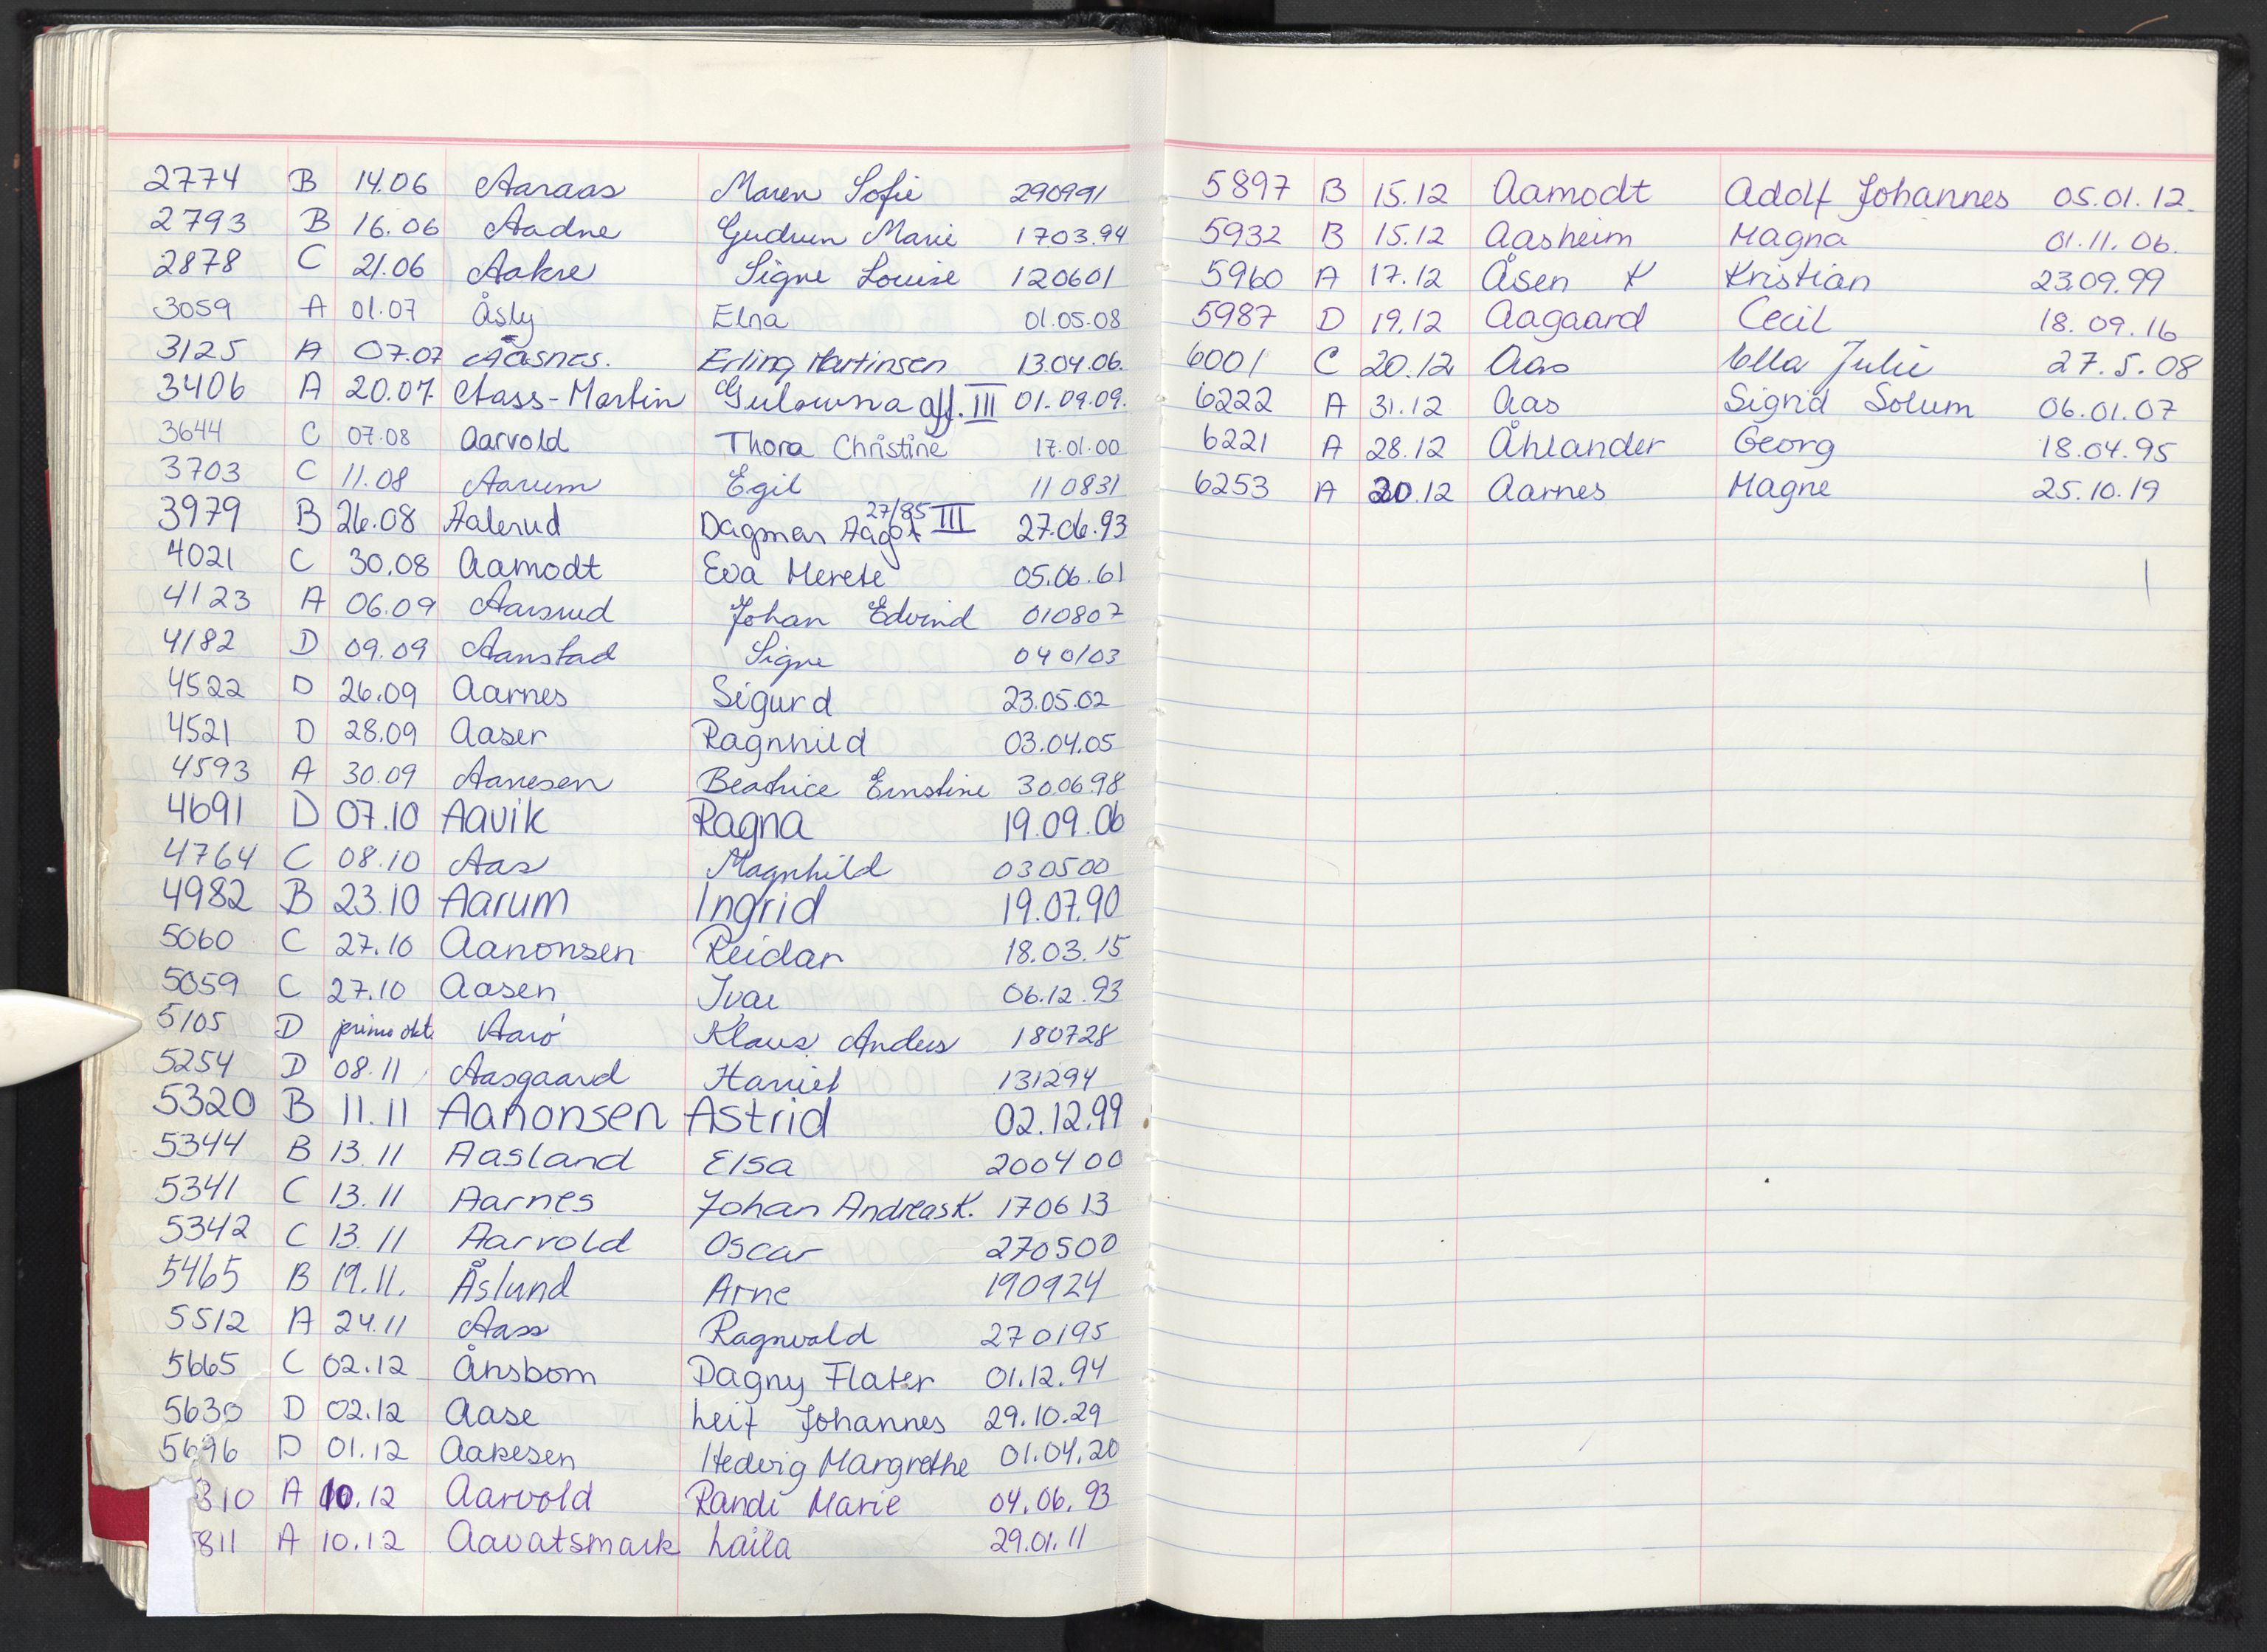 2774 B 14.06 Aaraas Maren Sofie 290991
2793 B 16.06 Aadne Gudrun Marie 1703.94
2878 C 21.06 Aakre Signe Louise 120601
3059 A 01.07 Åsly Elna 01.05.08
3125 A 07.07 Aasnes. Erling Martinsen 13.04.06.
3406 A 20.07 Aass-Martin Gulowna aff. III 01.09.09.
3644 C 07.08 Aarvold Thora Christine 17.01.00
3703 C 11.08 Aarum Egil 110831
3979 B 26.08 Aalerud Dagmar Aagot 27/85 III 27.06.93
4021 C 30.08 Aamodt Eva Merete 05.06.61
4123 A 06.09 Aarsrud Johan Edvind 010807
4182 D 09.09 Aanstad Signe 040103
4522 D 26.09 Aarnes Sigurd 23.05.02
4521 D 28.09 Aaser Ragnhild 03.04.05
4593 A 30.09 Aanesen Beatrice Ernstine 30.06.98
4691 D 07.10 Aavik Ragna 19.09.06
4764 C 08.10 Aas Magnhild 030500
4982 B 23.10 Aarum Ingrid 19.07.90
5060 C 27.10 Aanonsen Reidar 18.03.15
5059 C 27.10 Aasen Ivar 06.12.93
5105 D primo okt. Aarö Klaus Anders 180728
5254 D 08.11 Aasgaard Harriet 131294
5320 B 11.11 Aanonsen Astrid 02.12.99
5344 B 13.11 Aasland Elsa 200400
5341 C 13.11 Aarnes Johan Andreas K. 170613
5342 C 13.11 Aarvold Oscar 270500
5465 B 19.11. Åslund Arne 190924
5512 A 24.11 Aass Ragnvald 270195
5665 C 02.12 Ånsbom Dagny Flater 01.12.94
5630 D 02.12 Aase Leif Johannes 29.10.29
5696 D 01.12 Aakesen Hedvig Margrethe 01.04.20
310 A 10.12 Aarvold Randi Marie 04.06.93
811 A 10.12 Aavatsmark Laila 29.01.11
5897 B 15.12 Aamodt Adolf Johannes 05.01.12.
5932 B 15.12 Aasheim Magna 01.11.06.
5960 A 17.12 Åsen K Kristian 23.09.99
5987 D 19.12 Aagaard Cecil 18.09.16
6001 C 20.12 Aas Ella Julie 27.5.08
6222 A 31.12 Aas Sigrid Solum 06.01.07
6221 A 28.12 Åhlander Georg 18.04.95
6253 A 30.12 Aarnes Magne 25.10.19